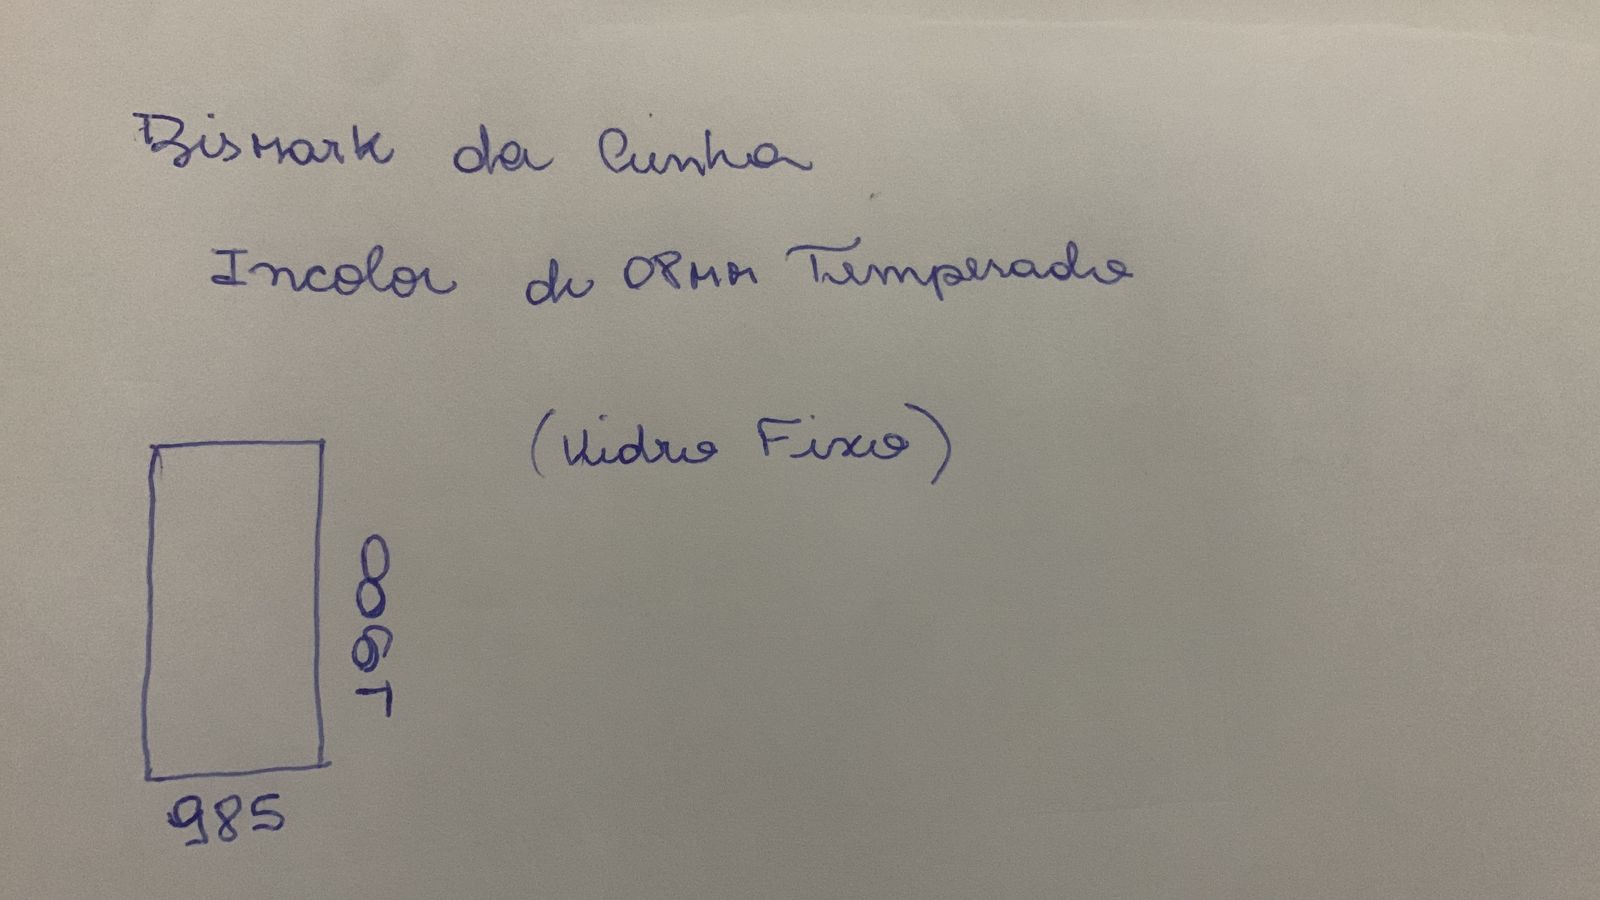 Bismark da Cunha
Incolor de 08mm Temperado
(Vidro Fixo)
1900
985